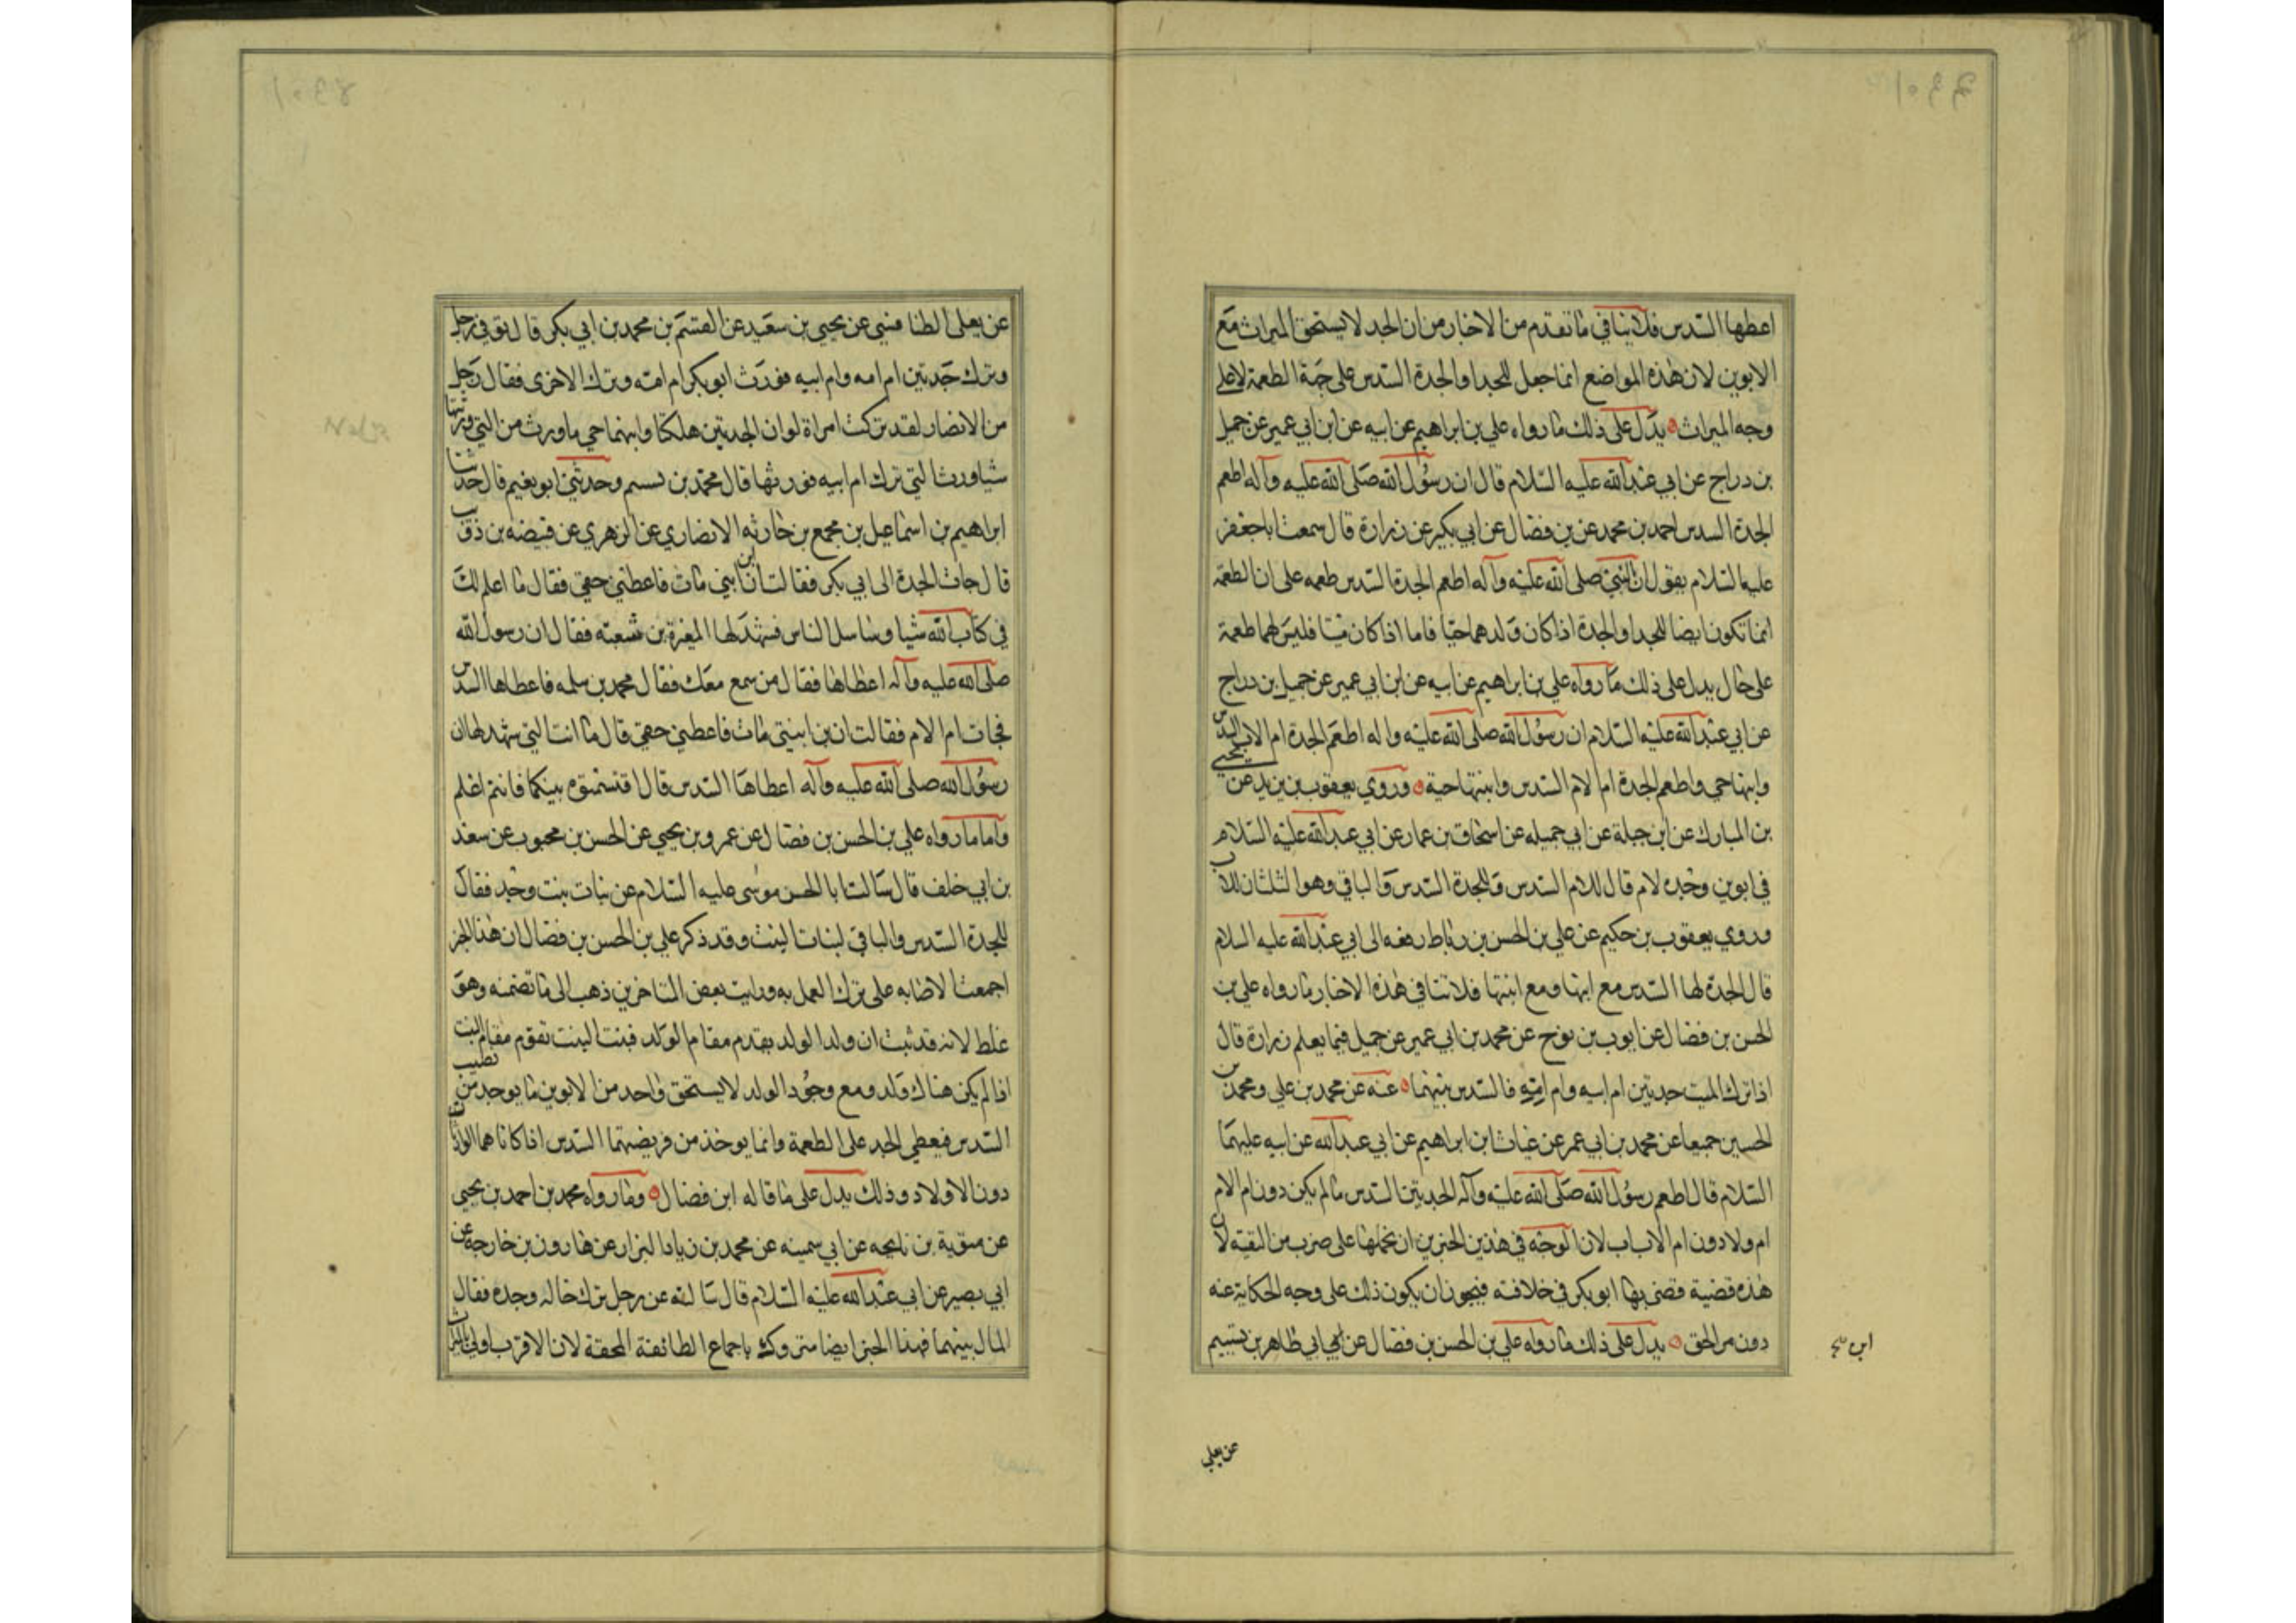 اعطها السدس فلا ينافي ما تقدم من الاخبار من ان الجد لا يستحق الميراث مع
الابوين لان هذه المواضع انما جعل للجد او الجدة السدس على جهة الطعمة لا على
وجه الميراث يدل على ذلك ما رواه علي بن ابراهيم عن ابيه عن ابن ابي عمير عن جميل
بن دراج عن ابي عبد الله عليه السلام قال ان رسول الله صلى الله عليه وآله اطعم
الجدة السدس احمد بن محمد عن بن فضال عن ابي بكير عن زرارة قال سمعت ابا جعفر
عليه السلام يقول ان النبي صلى الله عليه وآله اطعم الجدة السدس طعمه على ان الطعمة
انما تكون ايضا للجد او الجدة اذا كان ولدهما حيا فاما اذا كان ميتا فليس لهما طعمة
على حال يدل على ذلك ما رواه علي بن ابراهيم عن ابيه عن ابن ابي عمير عن جميل بن دراج
عن ابي عبد الله عليه السلام ان رسول الله صلى الله عليه واله اطعم الجدة ام الاب السدس
وابنها حي واطعم الجدة ام الام السدس وابنتها حية وروي يعقوب بن يزيد عن يحيى
بن المبارك عن ابن جبلة عن ابي جميله عن اسحاق بن عمار عن ابي عبد الله عليه السلام
في ابوين وجده لام قال للام السدس وللجدة السدس والباقي وهو الثلثان للاب
وروي يعقوب بن حكيم عن علي بن الحسن بن رباط رفعه الى ابي عبد الله عليه السلام
قال الجدة لها السدس مع ابنها ومع ابنتها فلا تنافي هذه الاخبار ما رواه علي بن
الحسن بن فضال عن ايوب بن نوح عن محمد بن ابي عمير عن جميل فيما يعلم زرارة قال
اذا ترك الميت جدتين ام ابيه وام امه فالسدس بينهما عنه عن محمد بن علي ومحمد بن
الحسين جميعا عن محمد بن ابي عمر عن غياث ابن ابراهيم عن ابي عبد الله عن ابيه عليهما
السلام قال اطعم رسول الله صلى الله عليه وآله الجدتين السدس ما لم يكن دون ام الام
ام ولا دون ام الاب اب لان الوجه في هذين الخبرين ان نحملها على ضرب من التقية لان
هذه قضية قضى بها ابو بكر في خلافته فيجوز ان يكون ذلك على وجه الحكاية عنه
دون مر الحق يدل على ذلك ما رواه علي بن الحسن بن فضال عن
عن يعلي
عن يعلى الطنافسي عن يحيى بن سعيد عن القسم بن محمد بن ابي بكر قال توفي رجل
وترك جدتين ام امه وام ابيه فورث ابو بكر ام امه وترك الاخرى فقال رجل
من الانصار لقد تركت امراة لو ان الجدتين هلكتا وابنهما حي ما ورث من التي ورثتها
شيا وورث التي ترك ام ابيه فورثها قال محمد بن وحدثني ابو نعيم قال حدثنا
ابراهيم بن اسماعيل بن مجمع بن حارثه الانصاري عن الزهري عن قبيضه بن ذؤيب
قال جات الجدة الى ابي بكر فقالت ان ابن ابني مات فاعطني حقي فقال ما اعلم لك
في كتاب الله شيا وساسل الناس فشهد لها المغيرة بن شعبه فقال ان رسول الله
صلى الله عليه وآله اعطاها فقال من سمع معك فقال محمد بن سلمه فاعطاها السدس
فجات ام الام فقالت ان بن ابنتي مات فاعطني حقي قال ما انت التي شهد لها ان
رسول الله صلى الله عليه وآله اعطاها السدس قال اقتسمتوه بينكما فانتم اعلم
واما ما رواه علي بن الحسن بن فضال عن عمرو بن يحيى عن الحسن بن محبوب عن سعد
بن ابي خلف قال سالت ابا الحسن موسى عليه السلام عن بنات بنت وجد فقال
للجدة السدس والباقي لبنات البنت وقد ذكر علي بن الحسن بن فضال ان هذا الخبر
اجمعت الاصابه على ترك العمل به ورايت بعض المتاخرين ذهب الى ما تضمنه وهو
غلط لانه قد ثبت ان ولد الولد يقدم مقام الولد فبنت البنت تقوم مقام البنت
اذا لم يكن هناك ولد ومع وجود الولد لا يستحق واحد من الابوين ما يوخذ من نصيب
السدس فيعطي الجد على الطعمة وانما يوخذ من فريضتهما السدس اذا كانا هما الوارثان
دون الاولاد وذلك يدل على ما قاله ابن فضال وما رواه محمد بن احمد بن يحيى
عن بن عن ابي سمينه عن محمد بن زياد البزار عن هارون بن خارجه عن
ابي بصير عن ابي عبد الله عليه السلام قال سالته عن رجل ترك خاله وجده فقال
المال بينهما فهذا الخبر ايضا متروك باجماع الطائفة المحقة لان الاقرب اولى بالميراث